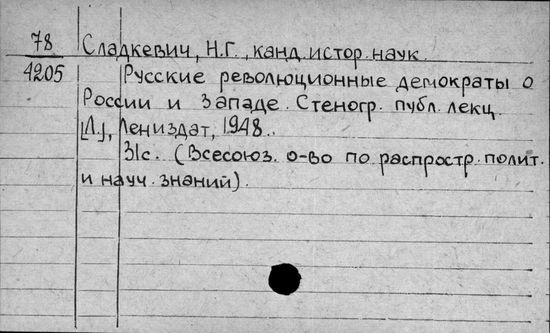 78 Сладкевич, Н.Г., канд. истор. наук.
4205 Русские революционные демократы о
России и Западе. Стеногр. публ. лекц.
[Л.], Лениздат, 1948.
31с. (Всесоюз. о-во по распростр. полит.
и науч. знаний).